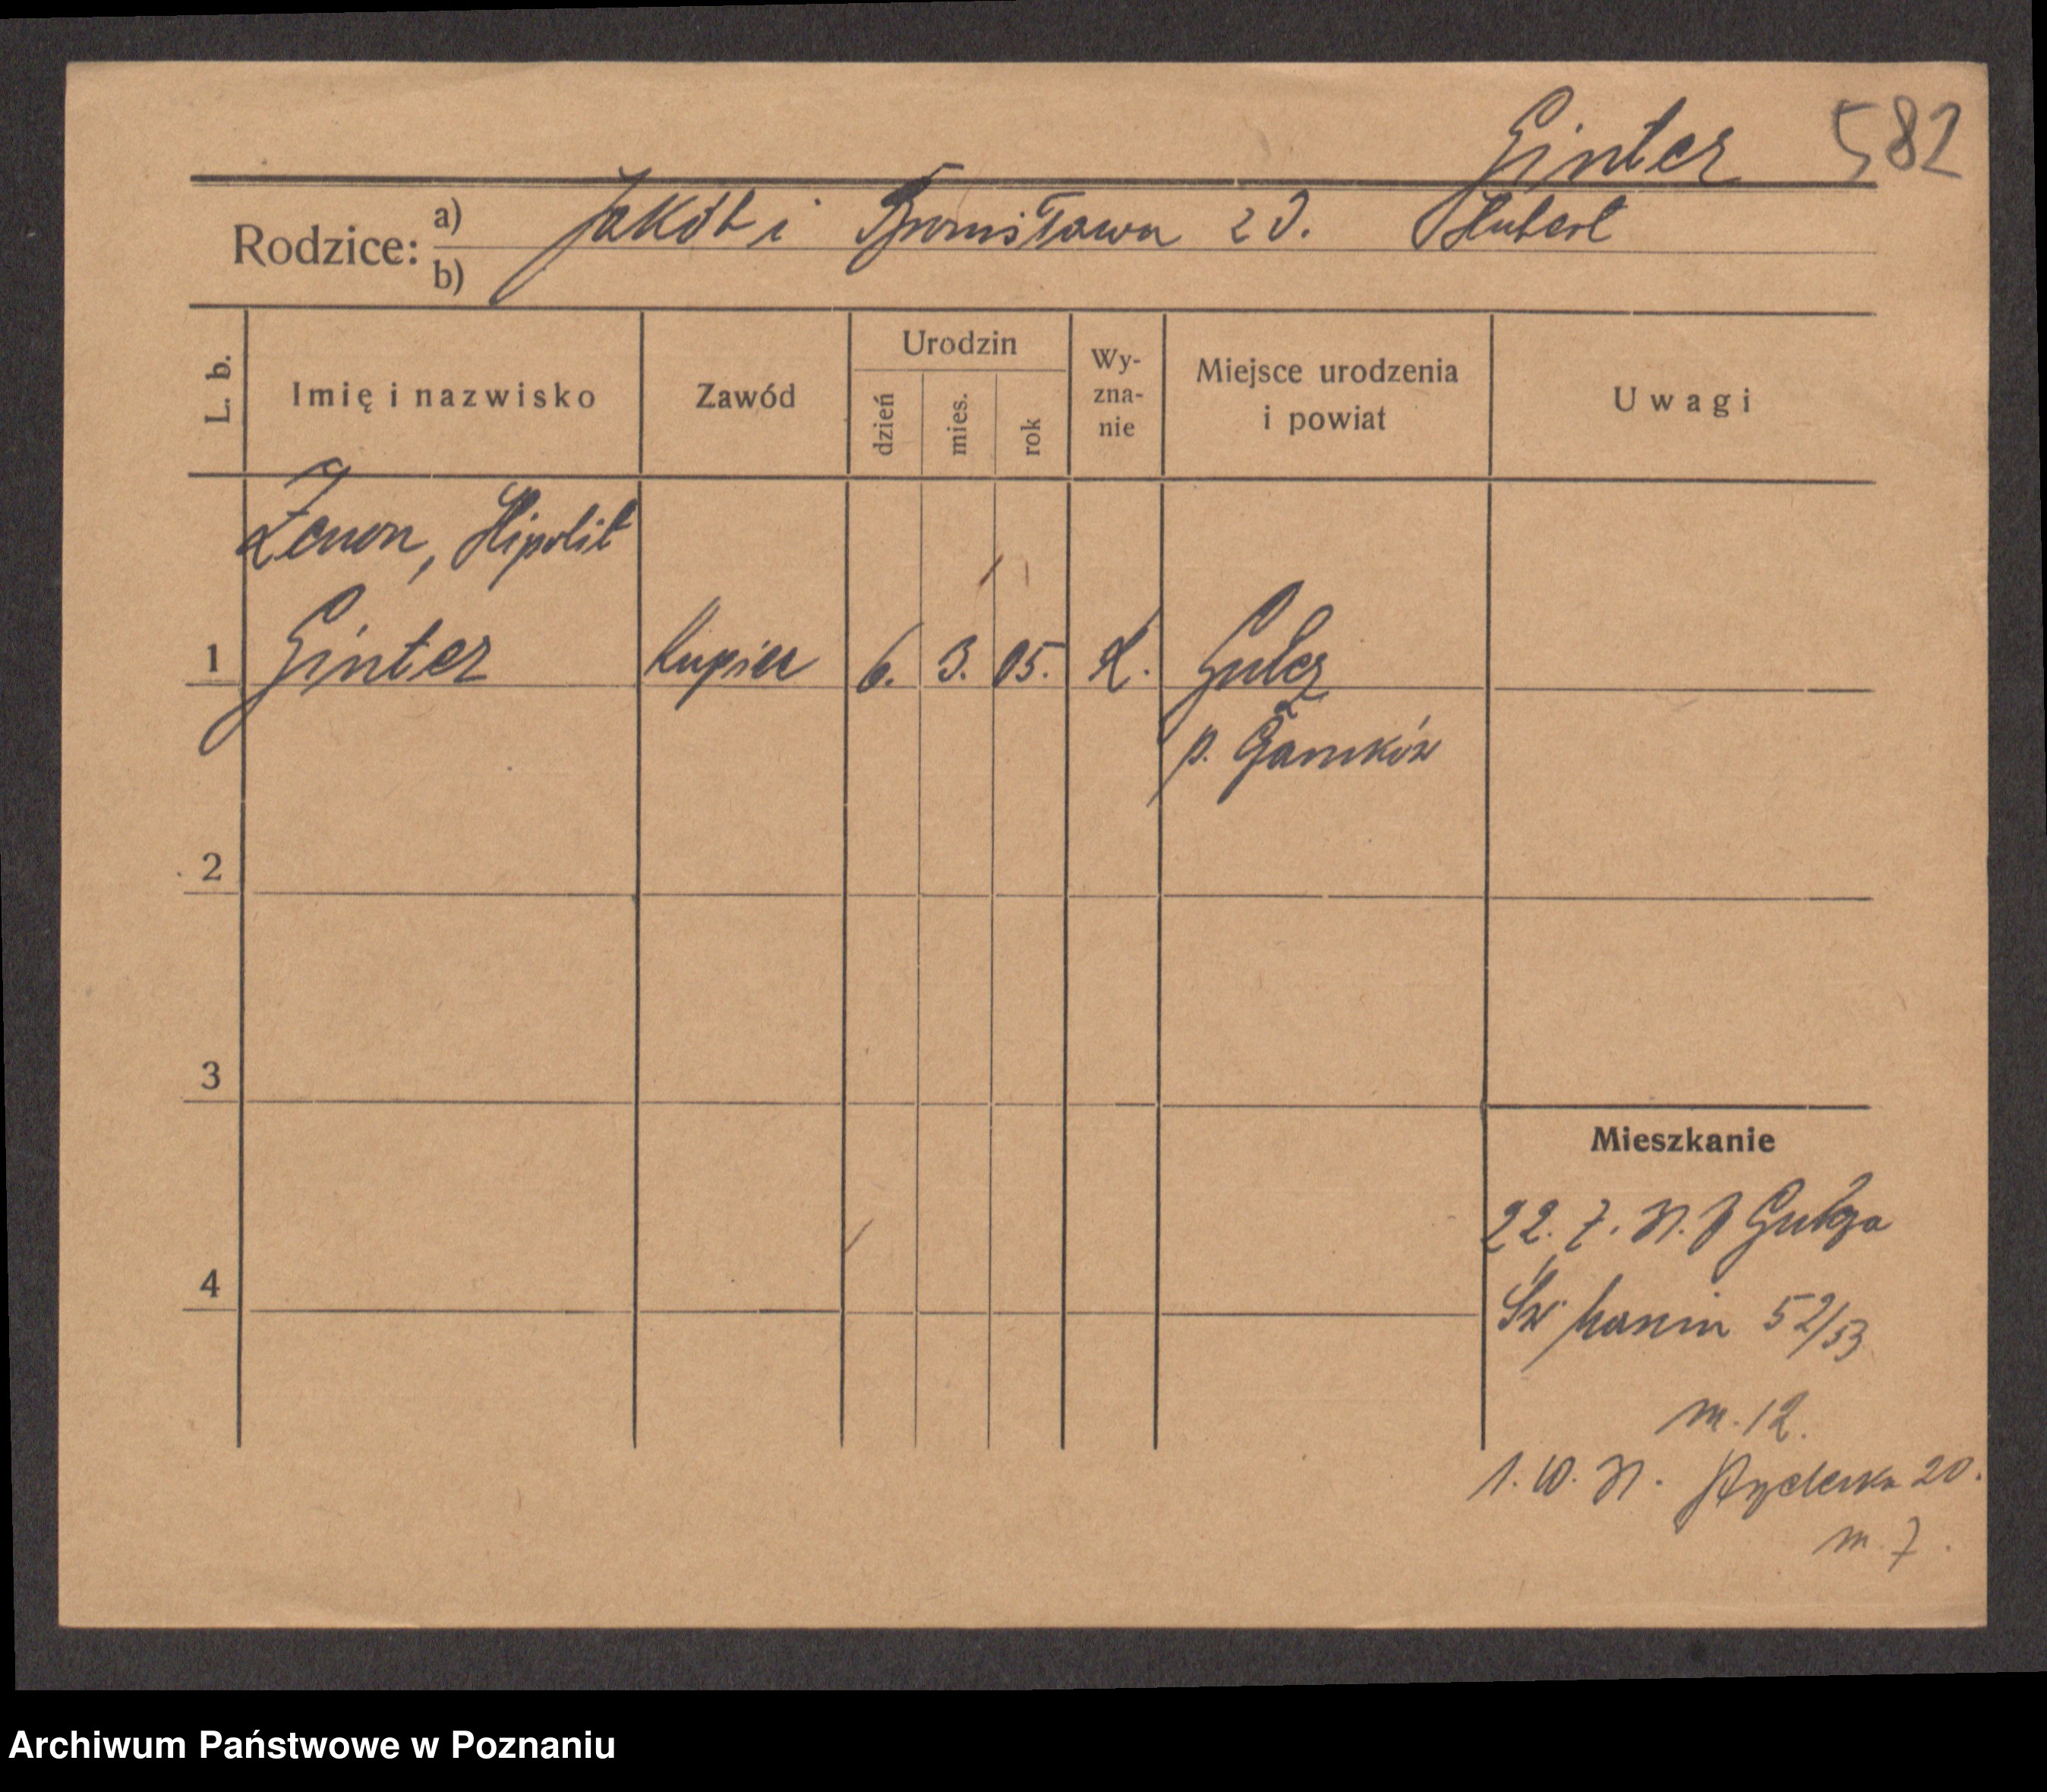 Ginter 582
Rodzice: a) Jakób i Bronisława z d. Hubert
b)
L. b.
Imię i nazwisko
Zawód
Urodzin
dzień
mies.
rok
Wy-
zna-
nie
Miejsce urodzenia
i powiat
Uwagi
Zenon, Hipolit
1 Ginter kupiec 6. 3. 05. k. Gulcz
p. Czarnków
2
3
4
Mieszkanie
22. 7. z Gulcza
Św Marcin 52/53
m. 12.
1. 10. 20.
m. 7.
Archiwum Państwowe w Poznaniu